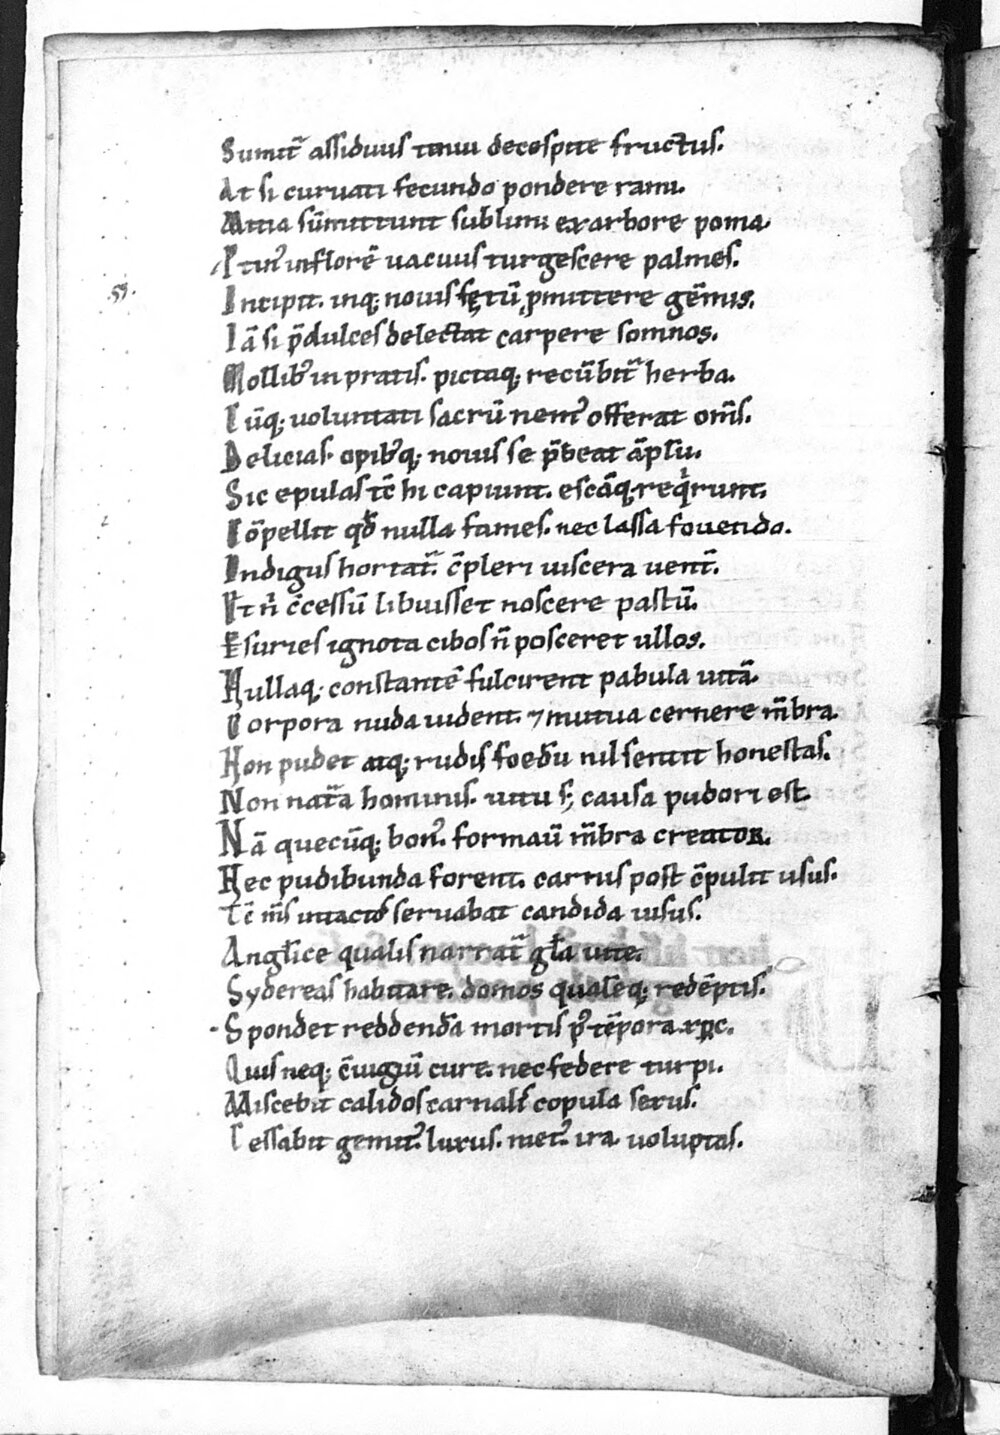 Sumit᷑ assiduus tenui de cespite fructus.
At si curuati fecundo pondere rami.
Mitia sūmittunt sublimi ex arbore poma.
Ptin᷒ in florē uacuus turgescere palmes.
.55.
Incipit. inq; nouis fętū ꝓmittere gēmis.
Iā si p̄dulces delectat carpere somnos.
Mollib᷒ in pratis. pictaq; recūbit᷑ herba.
Cūq; uoluntati sacrū nem᷒ offerat om̄s.
Delicias. opib᷒q; nouis se p̄beat āpłu.
Sic epulas tc̄ hi capiunt. escāq; reqͥrunt.
Cōpellit qđ nulla fames. nec lassa fouendo.
Indigus hortat᷑. c̄pleri uiscera uent̄.
Et nͥ c̄cessū libuisset noscere pastū.
Esuries ignota cibos n̄ posceret ullos.
Nullaq; constantē fulcirent pabula uitā.
Corpora nuda uident. ⁊ mutua cernere m̄bra.
Non pudet atq; rudis foedū nil sentit honestas.
Non nat᷑a hominis. uitiū s; causa pudori est.
Nā quecūq; bon᷒. formauͭ m̄bra creator.
Hec pudibunda forent. carnis post c̄pulit usus.
Tc̄ m̄s intactos seruabat candida uisus.
Anglice qualis narrat᷑ gła uite.
Sydereas habitare. domos qualēq; redēptis.
Spondet reddendā mortis p᷒ tēpora xp̄c.
Quis neq; c̄iugiū cure. nec federe turpi.
Miscebit calidos carnalis copula sexus.
Cessabit gemit᷒. luxus. met᷒. ira. uoluptas.